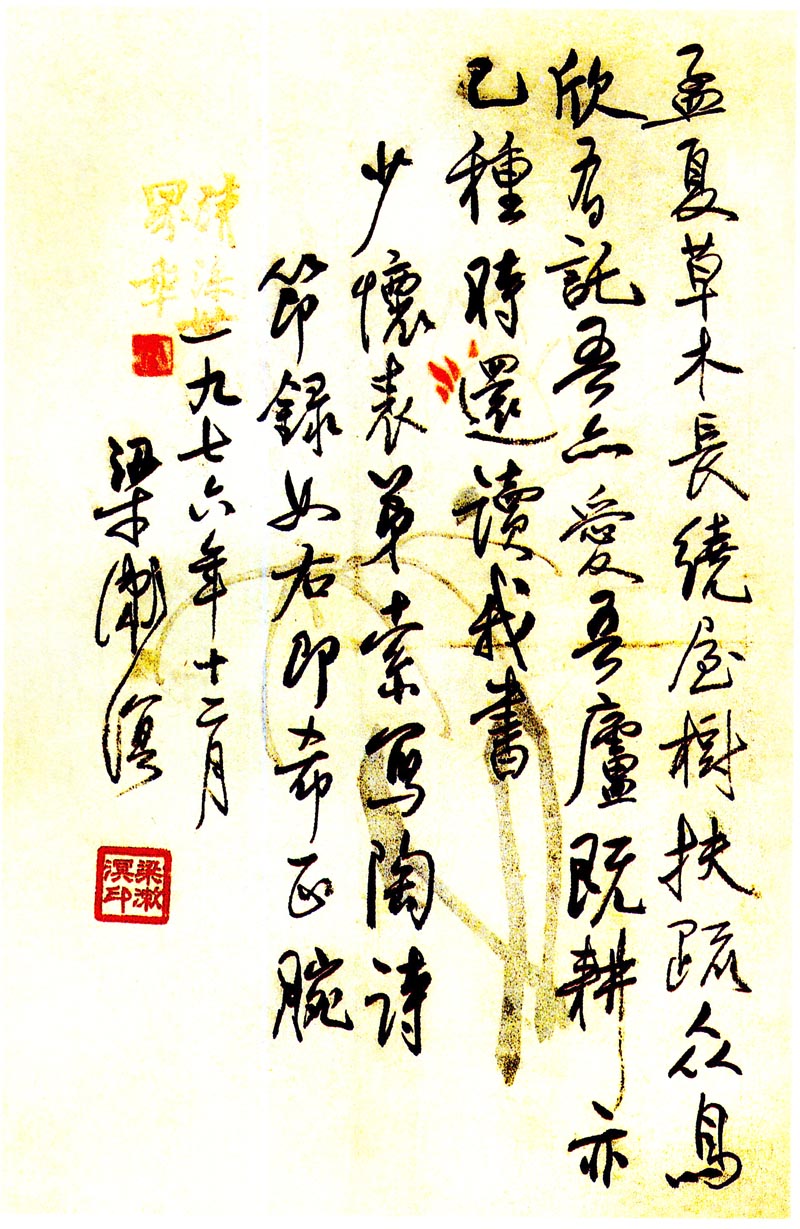 孟夏草木長繞屋樹扶疏众鳥
欣有託吾亦愛吾廬既耕亦
已種時還讀我書
少懷表弟索写陶诗
節録如右即希正腕
一九七六年十二月
梁漱溟
梁漱溟印